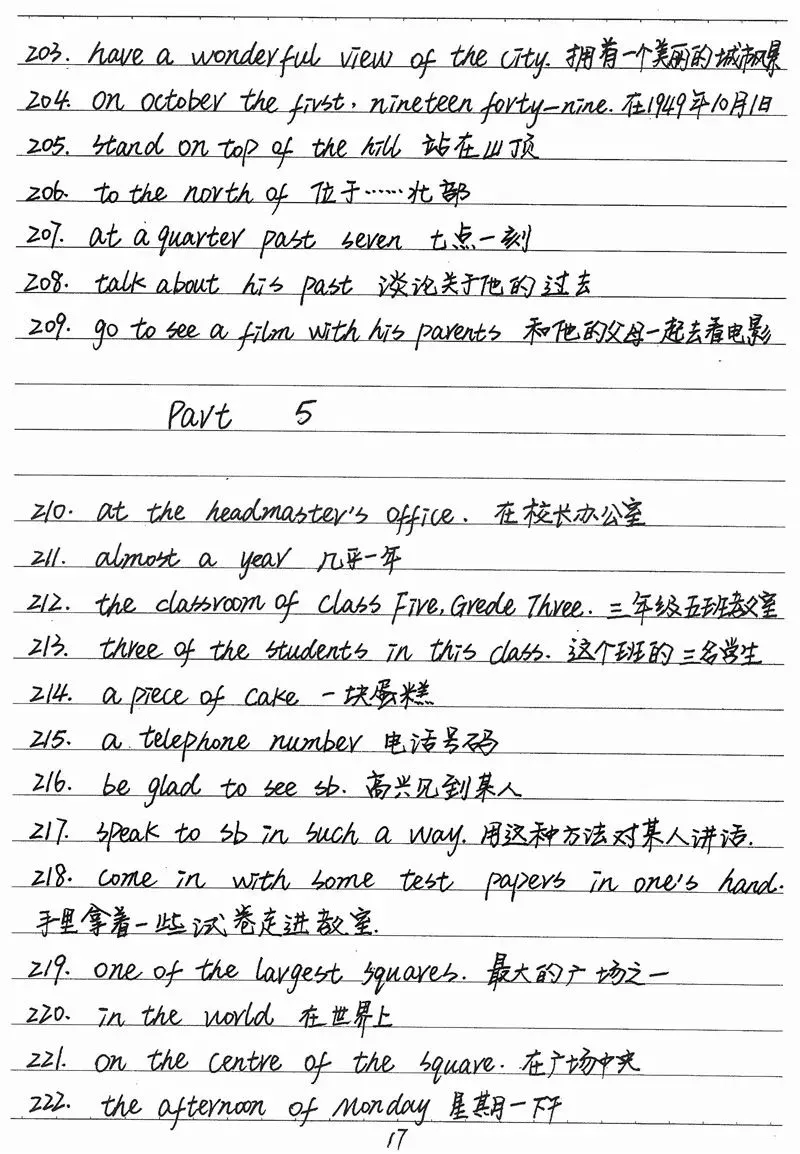 203. have a wonderful view of the city. 拥有一个美丽的城市风景
204. on october the first, nineteen forty-nine. 在1949年10月1日
205. stand on top of the hill 站在山顶
206. to the north of 位于……北部
207. at a quarter past seven 七点一刻
208. talk about his past 谈论关于他的过去
209. go to see a film with his parents 和他的父母一起去看电影
Part 5
210. at the headmaster's office. 在校长办公室
211. almost a year 几乎一年
212. the classroom of Class Five, Grede Three. 三年级五班教室
213. three of the students in this class. 这个班的三名学生
214. a piece of cake 一块蛋糕
215. a telephone number 电话号码
216. be glad to see sb. 高兴见到某人
217. speak to sb in such a way. 用这种方法对某人讲话.
218. come in with some test papers in one's hand.
手里拿着一些试卷走进教室.
219. one of the largest squares. 最大的广场之一
220. in the world 在世界上
221. on the centre of the square. 在广场中央
222. the afternoon of Monday 星期一下午
17